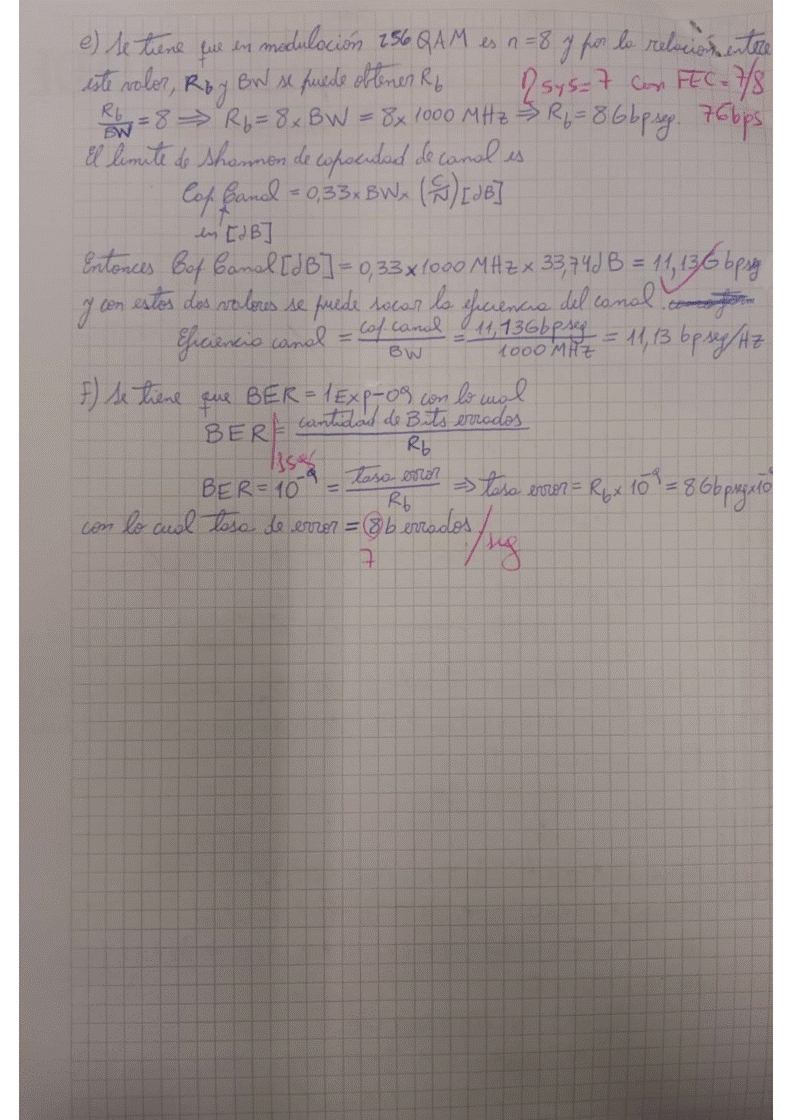 e) Se tiene que en modulación 256 QAM es n=8 y por la relación entre
este valor, Rb y BW se puede obtener Rb ηsys=7 con FEC=7/8
Rb/BW = 8 ⇒ Rb = 8 x BW = 8 x 1000 MHz ⇒ Rb = 8Gbpseg. 7Gbps
El limite de Shannon de capacidad de canal es
Cap Canal = 0,33 x BW x (C/N) [dB]
en [dB]
Entonces Cap Canal [dB] = 0,33 x 1000 MHz x 33,74dB = 11,13Gbpseg
y con estos dos valores se puede sacar la eficiencia del canal.
Eficiencia canal = cap canal/BW = 11,13Gbpseg/1000 MHz = 11,13 bpseg/Hz
F) Se tiene que BER = 1Exp-09 con lo cual
BER = cantidad de Bits errados/Rb
BER = 10^-9 = tasa error/Rb ⇒ tasa error = Rb x 10^-9 = 8Gbpseg x 10^-9
con lo cual tasa de error = 8b errados/seg
7